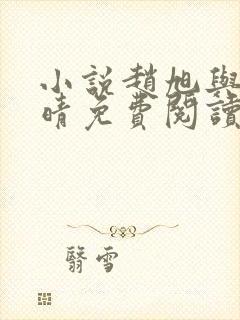 小説趙旭與
晴免費閱讀
翳雪